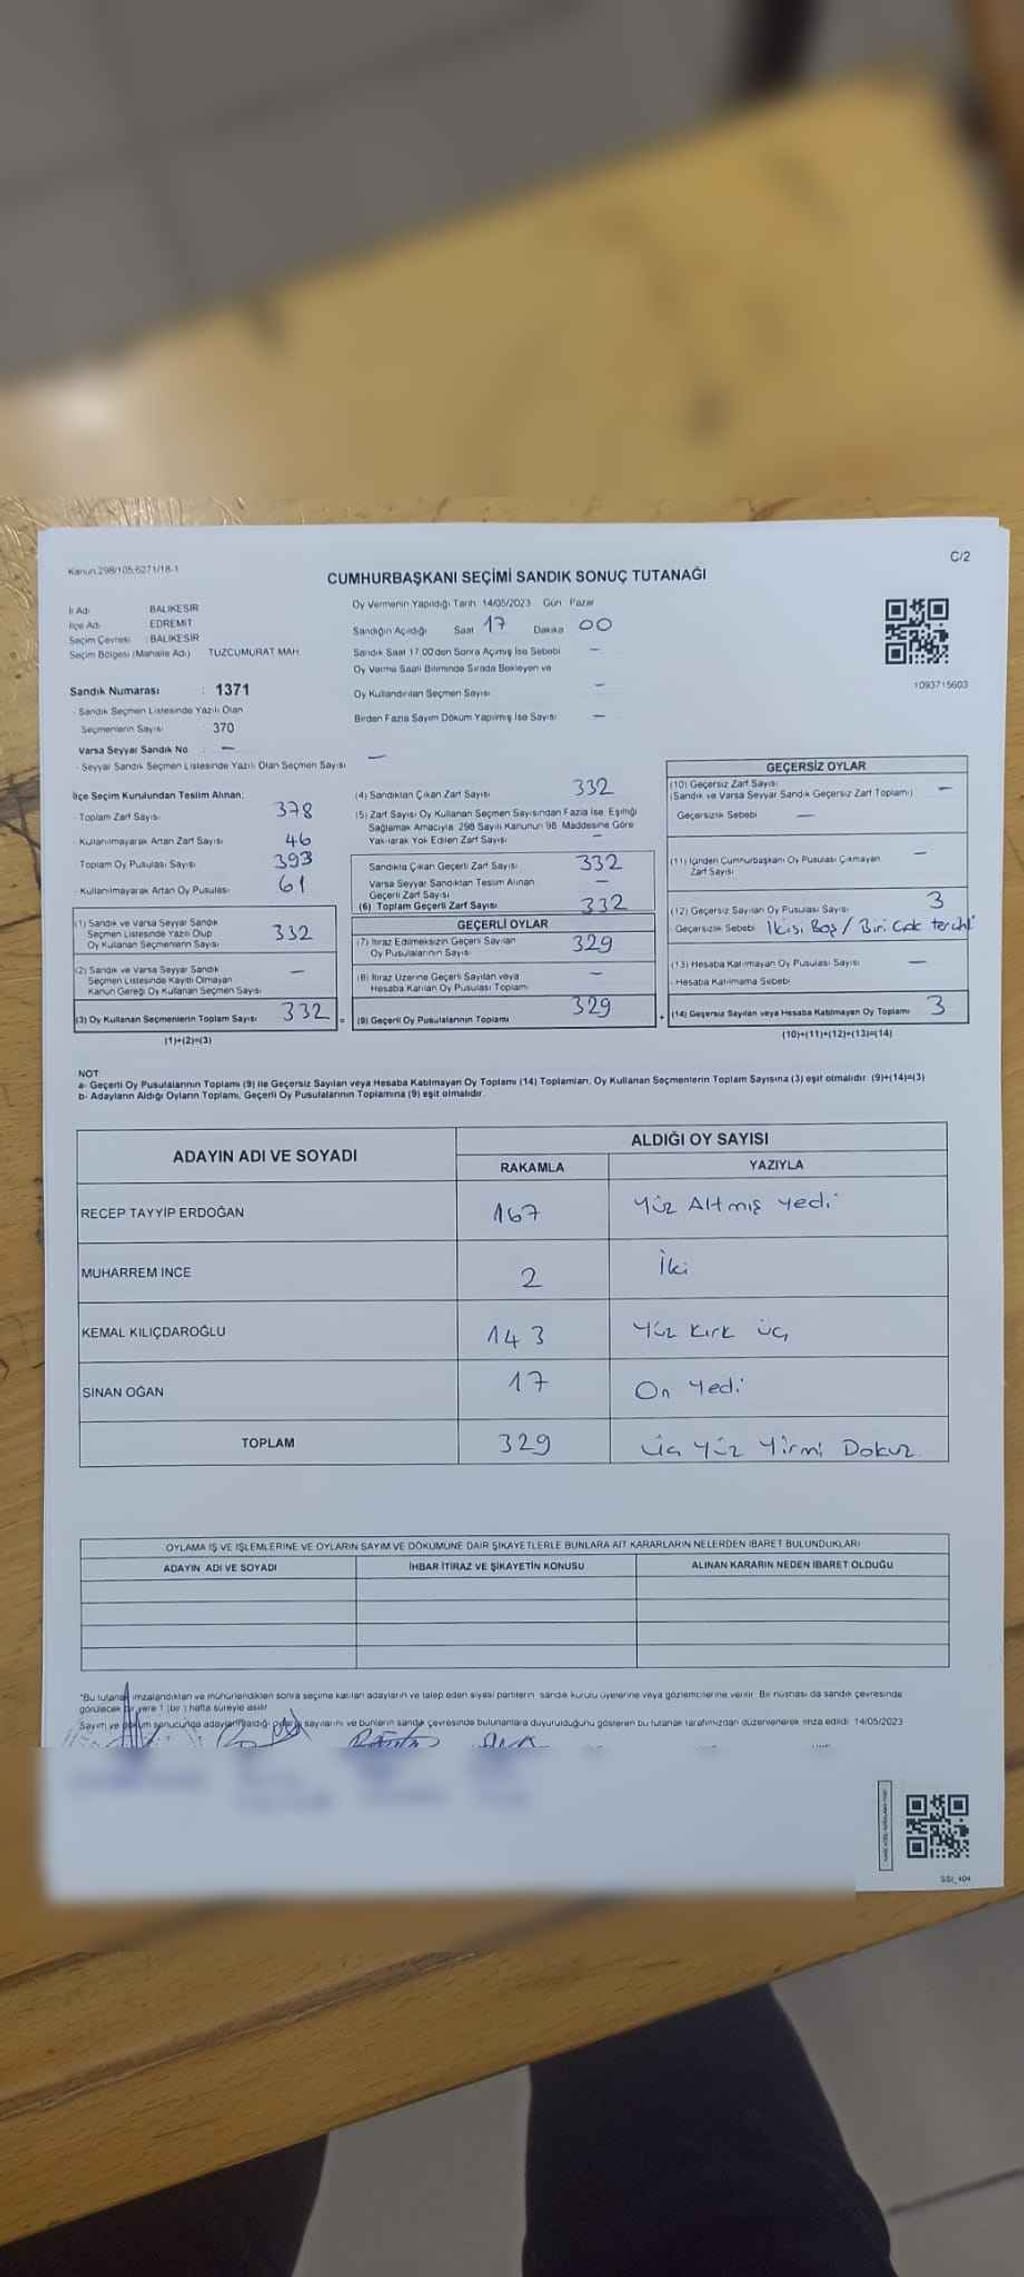 Kanun:298/105;6271/18-1
C/2
CUMHURBAŞKANI SEÇİMİ SANDIK SONUÇ TUTANAĞI
İl Adı : BALIKESİR
İlçe Adı : EDREMİT
Seçim Çevresi : BALIKESİR
Seçim Bölgesi (Mahalle Adı) TUZCUMURAT MAH.
Oy Vermenin Yapıldığı Tarih 14/05/2023 Gün Pazar
Sandığın Açıldığı Saat 17 Dakika 00
Sandık Saat 17:00'den Sonra Açılmış İse Sebebi —
Oy Verme Saati Bitiminde Sırada Bekleyen ve
Oy Kullandırılan Seçmen Sayısı —
Birden Fazla Sayım Döküm Yapılmış İse Sayısı —
1093715603
Sandık Numarası : 1371
- Sandık Seçmen Listesinde Yazılı Olan
Seçmenlerin Sayısı 370
Varsa Seyyar Sandık No : —
- Seyyar Sandık Seçmen Listesinde Yazılı Olan Seçmen Sayısı —
İlçe Seçim Kurulundan Teslim Alınan;
- Toplam Zarf Sayısı 378
- Kullanılmayarak Artan Zarf Sayısı 46
Toplam Oy Pusulası Sayısı 393
- Kullanılmayarak Artan Oy Pusulası 61
(1) Sandık ve Varsa Seyyar Sandık
Seçmen Listesinde Yazılı Olup
Oy Kullanan Seçmenlerin Sayısı 332
(2) Sandık ve Varsa Seyyar Sandık
Seçmen Listesinde Kayıtlı Olmayan
Kanun Gereği Oy Kullanan Seçmen Sayısı —
(3) Oy Kullanan Seçmenlerin Toplam Sayısı 332 =
(1)+(2)=(3)
(4) Sandıktan Çıkan Zarf Sayısı 332
(5) Zarf Sayısı Oy Kullanan Seçmen Sayısından Fazla İse, Eşitliği
Sağlamak Amacıyla, 298 Sayılı Kanunun 98. Maddesine Göre
Yakılarak Yok Edilen Zarf Sayısı —
Sandıkta Çıkan Geçerli Zarf Sayısı 332
Varsa Seyyar Sandıktan Teslim Alınan
Geçerli Zarf Sayısı —
(6) Toplam Geçerli Zarf Sayısı 332
GEÇERLİ OYLAR
(7) İtiraz Edilmeksizin Geçerli Sayılan
Oy Pusulalarının Sayısı 329
(8) İtiraz Üzerine Geçerli Sayılan veya
Hesaba Katılan Oy Pusulası Toplamı —
(9) Geçerli Oy Pusulalarının Toplamı 329 +
GEÇERSİZ OYLAR
(10) Geçersiz Zarf Sayısı
(Sandık ve Varsa Seyyar Sandık Geçersiz Zarf Toplamı) —
Geçersizlik Sebebi —
(11) İçinden Cumhurbaşkanı Oy Pusulası Çıkmayan
Zarf Sayısı —
(12) Geçersiz Sayılan Oy Pusulası Sayısı 3
Geçersizlik Sebebi İkisi Boş / Biri Çok tercih
(13) Hesaba Katılmayan Oy Pusulası Sayısı —
- Hesaba Katılmama Sebebi
(14) Geçersiz Sayılan veya Hesaba Katılmayan Oy Toplamı 3
(10)+(11)+(12)+(13)=(14)
NOT
a- Geçerli Oy Pusulalarının Toplamı (9) ile Geçersiz Sayılan veya Hesaba Katılmayan Oy Toplamı (14) Toplamları, Oy Kullanan Seçmenlerin Toplam Sayısına (3) eşit olmalıdır. (9)+(14)=(3)
b- Adayların Aldığı Oyların Toplamı, Geçerli Oy Pusulalarının Toplamına (9) eşit olmalıdır.
ADAYIN ADI VE SOYADI
ALDIĞI OY SAYISI
RAKAMLA YAZIYLA
RECEP TAYYİP ERDOĞAN 167 Yüz Altmış Yedi
MUHARREM İNCE 2 İki
KEMAL KILIÇDAROĞLU 143 Yüz Kırk üç
SİNAN OĞAN 17 On Yedi
TOPLAM 329 üç Yüz Yirmi Dokuz
OYLAMA İŞ VE İŞLEMLERİNE VE OYLARIN SAYIM VE DÖKÜMÜNE DAİR ŞİKAYETLERLE BUNLARA AİT KARARLARIN NELERDEN İBARET BULUNDUKLARI
ADAYIN ADI VE SOYADI İHBAR İTİRAZ VE ŞİKAYETİN KONUSU ALINAN KARARIN NEDEN İBARET OLDUĞU
*Bu tutanak imzalandıktan ve mühürlendikten sonra seçime katılan adayların ve talep eden siyasi partilerin sandık kurulu üyelerine veya gözlemcilerine verilir. Bir nüshası da sandık çevresinde
görülecek bir yere 1 (bir) hafta süreyle asılır.
Sayım ve döküm sonucunda adayların aldığı oyların sayılarını ve bunların sandık çevresinde bulunanlara duyurulduğunu gösteren bu tutanak tarafımızdan düzenlenerek imza edildi. 14/05/2023